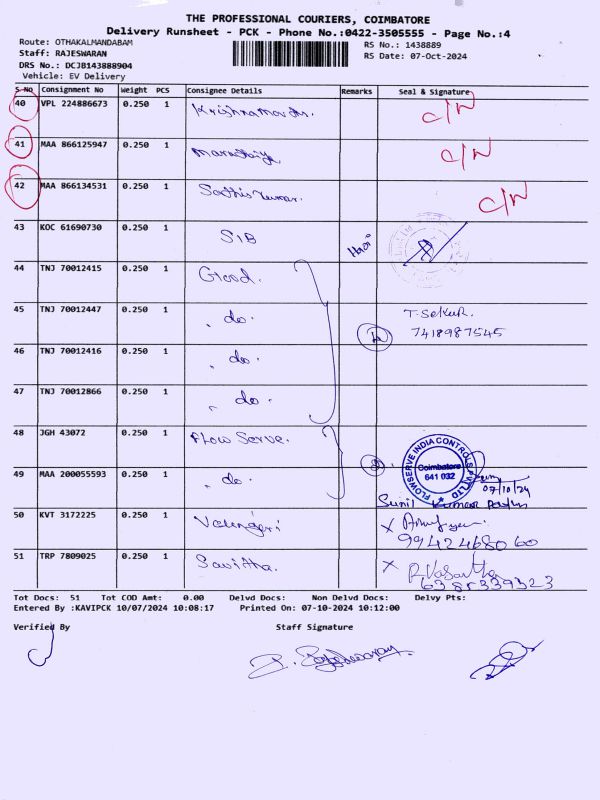 THE PROFESSIONAL COURIERS, COIMBATORE
Delivery Runsheet - PCK - Phone No.:0422-3505555 - Page No.:4
Route: OTHAKALMANDABAM
Staff: RAJESWARAN
DRS No.: DCJB143888904
Vehicle: EV Delivery
RS No.: 1438889
RS Date: 07-Oct-2024
S No Consignment No Weight PCS Consignee Details Remarks Seal & Signature
40 VPL 224886673 0.250 1 C/N
41 MAA 866125947 0.250 1 C/N
42 MAA 866134531 0.250 1 Sathis Kumar. C/N
43 KOC 61690730 0.250 1 SIB
44 TNJ 70012415 0.250 1 Good.
45 TNJ 70012447 0.250 1 " do. T. Sekur. 7418987545
46 TNJ 70012416 0.250 1 " do.
47 TNJ 70012866 0.250 1 " do.
48 JGH 43072 0.250 1 Flow Serve.
FLOWSERVE INDIA CONTROLS PVT LTD
Coimbatore
641 032
49 MAA 200055593 0.250 1 " do. 07/10/24
Sunil Kumar
50 KVT 3172225 0.250 1 X 9942468060
51 TRP 7809025 0.250 1 Savitha. X R. Vasantha
6385339323
Tot Docs: 51 Tot COD Amt: 0.00 Delvd Docs: Non Delvd Docs: Delvy Pts:
Entered By :KAVIPCK 10/07/2024 10:08:17 Printed On: 07-10-2024 10:12:00
Verified By Staff Signature